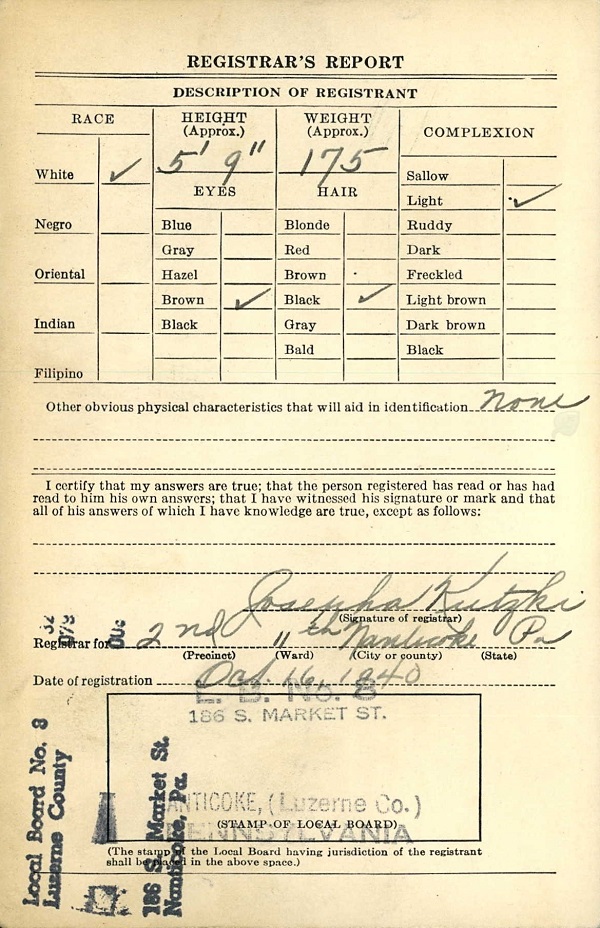 REGISTRAR'S REPORT
DESCRIPTION OF REGISTRANT
RACE
HEIGHT
(Approx.)
WEIGHT
(Approx.)
COMPLEXION
5' 9"
175
White ✓
EYES
HAIR
Sallow
Light ✓
Negro
Blue
Blonde
Ruddy
Gray
Red
Dark
Oriental
Hazel
Brown
Freckled
Brown ✓
Black ✓
Light brown
Indian
Black
Gray
Dark brown
Bald
Black
Filipino
Other obvious physical characteristics that will aid in identification None
I certify that my answers are true; that the person registered has read or has had
read to him his own answers; that I have witnessed his signature or mark and that
all of his answers of which I have knowledge are true, except as follows:
Josepha Kutzki
(Signature of registrar)
Registrar for 2nd 11th Nanticoke Pa
(Precinct) (Ward) (City or county) (State)
Date of registration Oct. 16, 1940
L. B. No. 8
186 S. MARKET ST.
NANTICOKE, (Luzerne Co.)
(STAMP OF LOCAL BOARD)
PENNSYLVANIA
(The stamp of the Local Board having jurisdiction of the registrant
shall be placed in the above space.)
Local Board No. 8
Luzerne County
186 S. Market St.
Nanticoke, Pa.